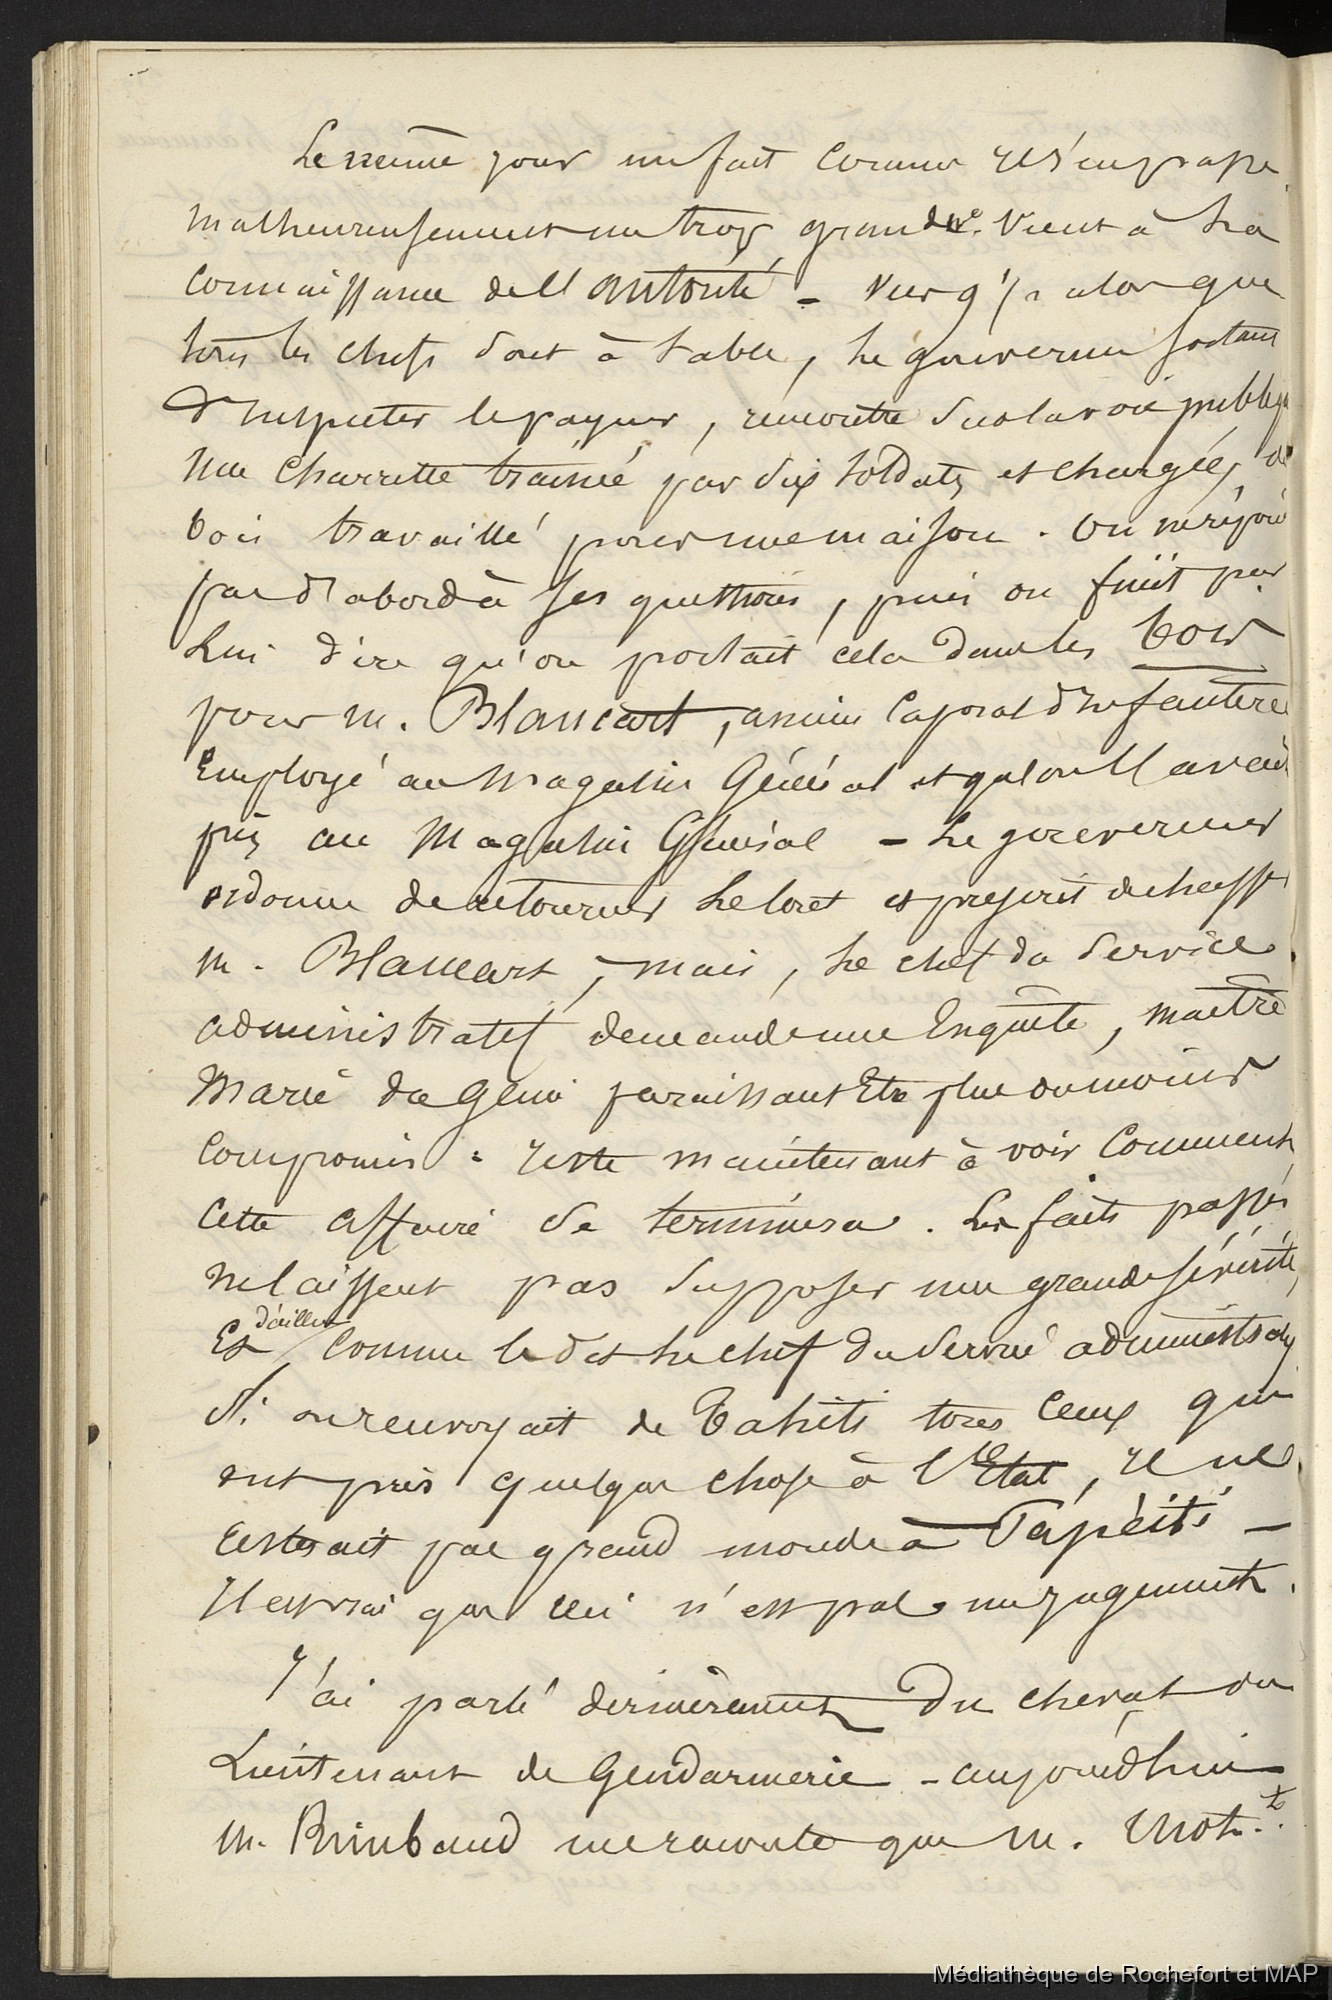 Le même jour un fait comme il s'en passe
malheureusement un trop grand nbre. vient à la
connaissance de l'autorité - Vers 9h ½ alors que
tous les chefs sont à table, le gouverneur sortant
d'inspecter le payeur, rencontre sur la voie publique
une charrette trainée par dix soldats et chargée de
bois travaillé pour une maison. On ne répond
pas d'abord à ses questions, puis on finit par
lui dire qu'on portait cela dans les bois
pour M. Blancart, ancien Caporal d'infanterie
Employé au Magasin Général et qu'on l'avait
pris au Magasin Général - Le gouverneur
ordonne de retourner le tout et prescrit de chasser
M. Blancart, mais, le chef du service
administratif demande une Enquête, maître
Marie du Génie paraissant Etre plus ou moins
compromis. reste maintenant à voir Comment
Cette affaire se terminera. Les faits passés
ne laissent pas supposer une grande sévérité,
Et d'ailleurs Comme le dit le chef du service administratif
si on renvoyait de Tahiti tous Ceux qui
ont pris quelque chose à l'Etat, il ne
resterait pas grand monde à Papéiti -
Il est vrai que ceci n'est pas un jugement.
J'ai parlé dernièrement du cheval du
Lieutenant de Gendarmerie - aujourd'hui
M. Rimbaud me raconte que M.
Médiathèque de Rochefort et MAP